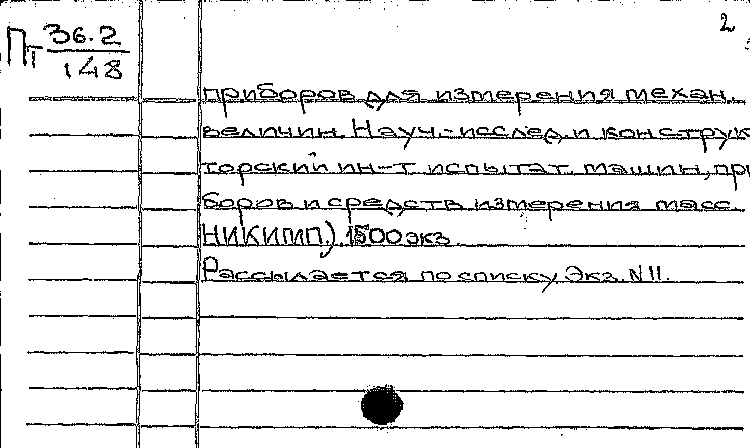 2
Пт 36.2
148
приборов для измерения механ.
величин. Науч.-исслед. и конструк
торский ин-т испытат. машин, при
боров и средств измерения масс
НИКИМП.). 1500 экз.
Рассылается по списку. Экз. N 11.